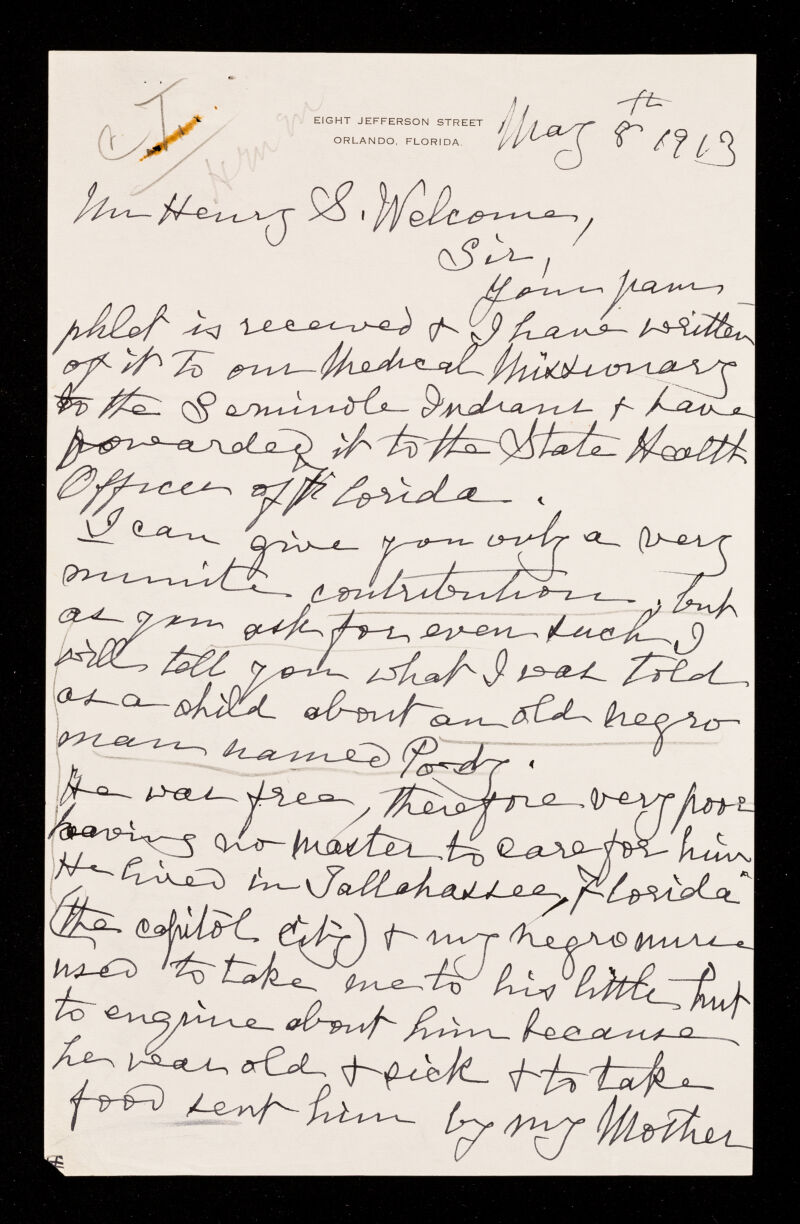 I.
EIGHT JEFFERSON STREET
ORLANDO, FLORIDA.
May 8th 1913
Mr Henry S. Welcome,
Sir,
Your pam
phlet is received & I have written
of it to our Medical Missionary
to the Seminole Indians & have
forwarded it to the State Health
Officer of Florida.
I can give you only a very
minute contribution, but
as you ask for even such I
will tell you what I was told
as a child about an old negro
man named Pody.
He was free, therefore very poor
having no master to care for him
He lived in Tallahassee, Florida
(the capitol city) & my negro nurse
used to take me to his little hut
to enquire about him because
he was old & sick & to take
food sent him by my Mother